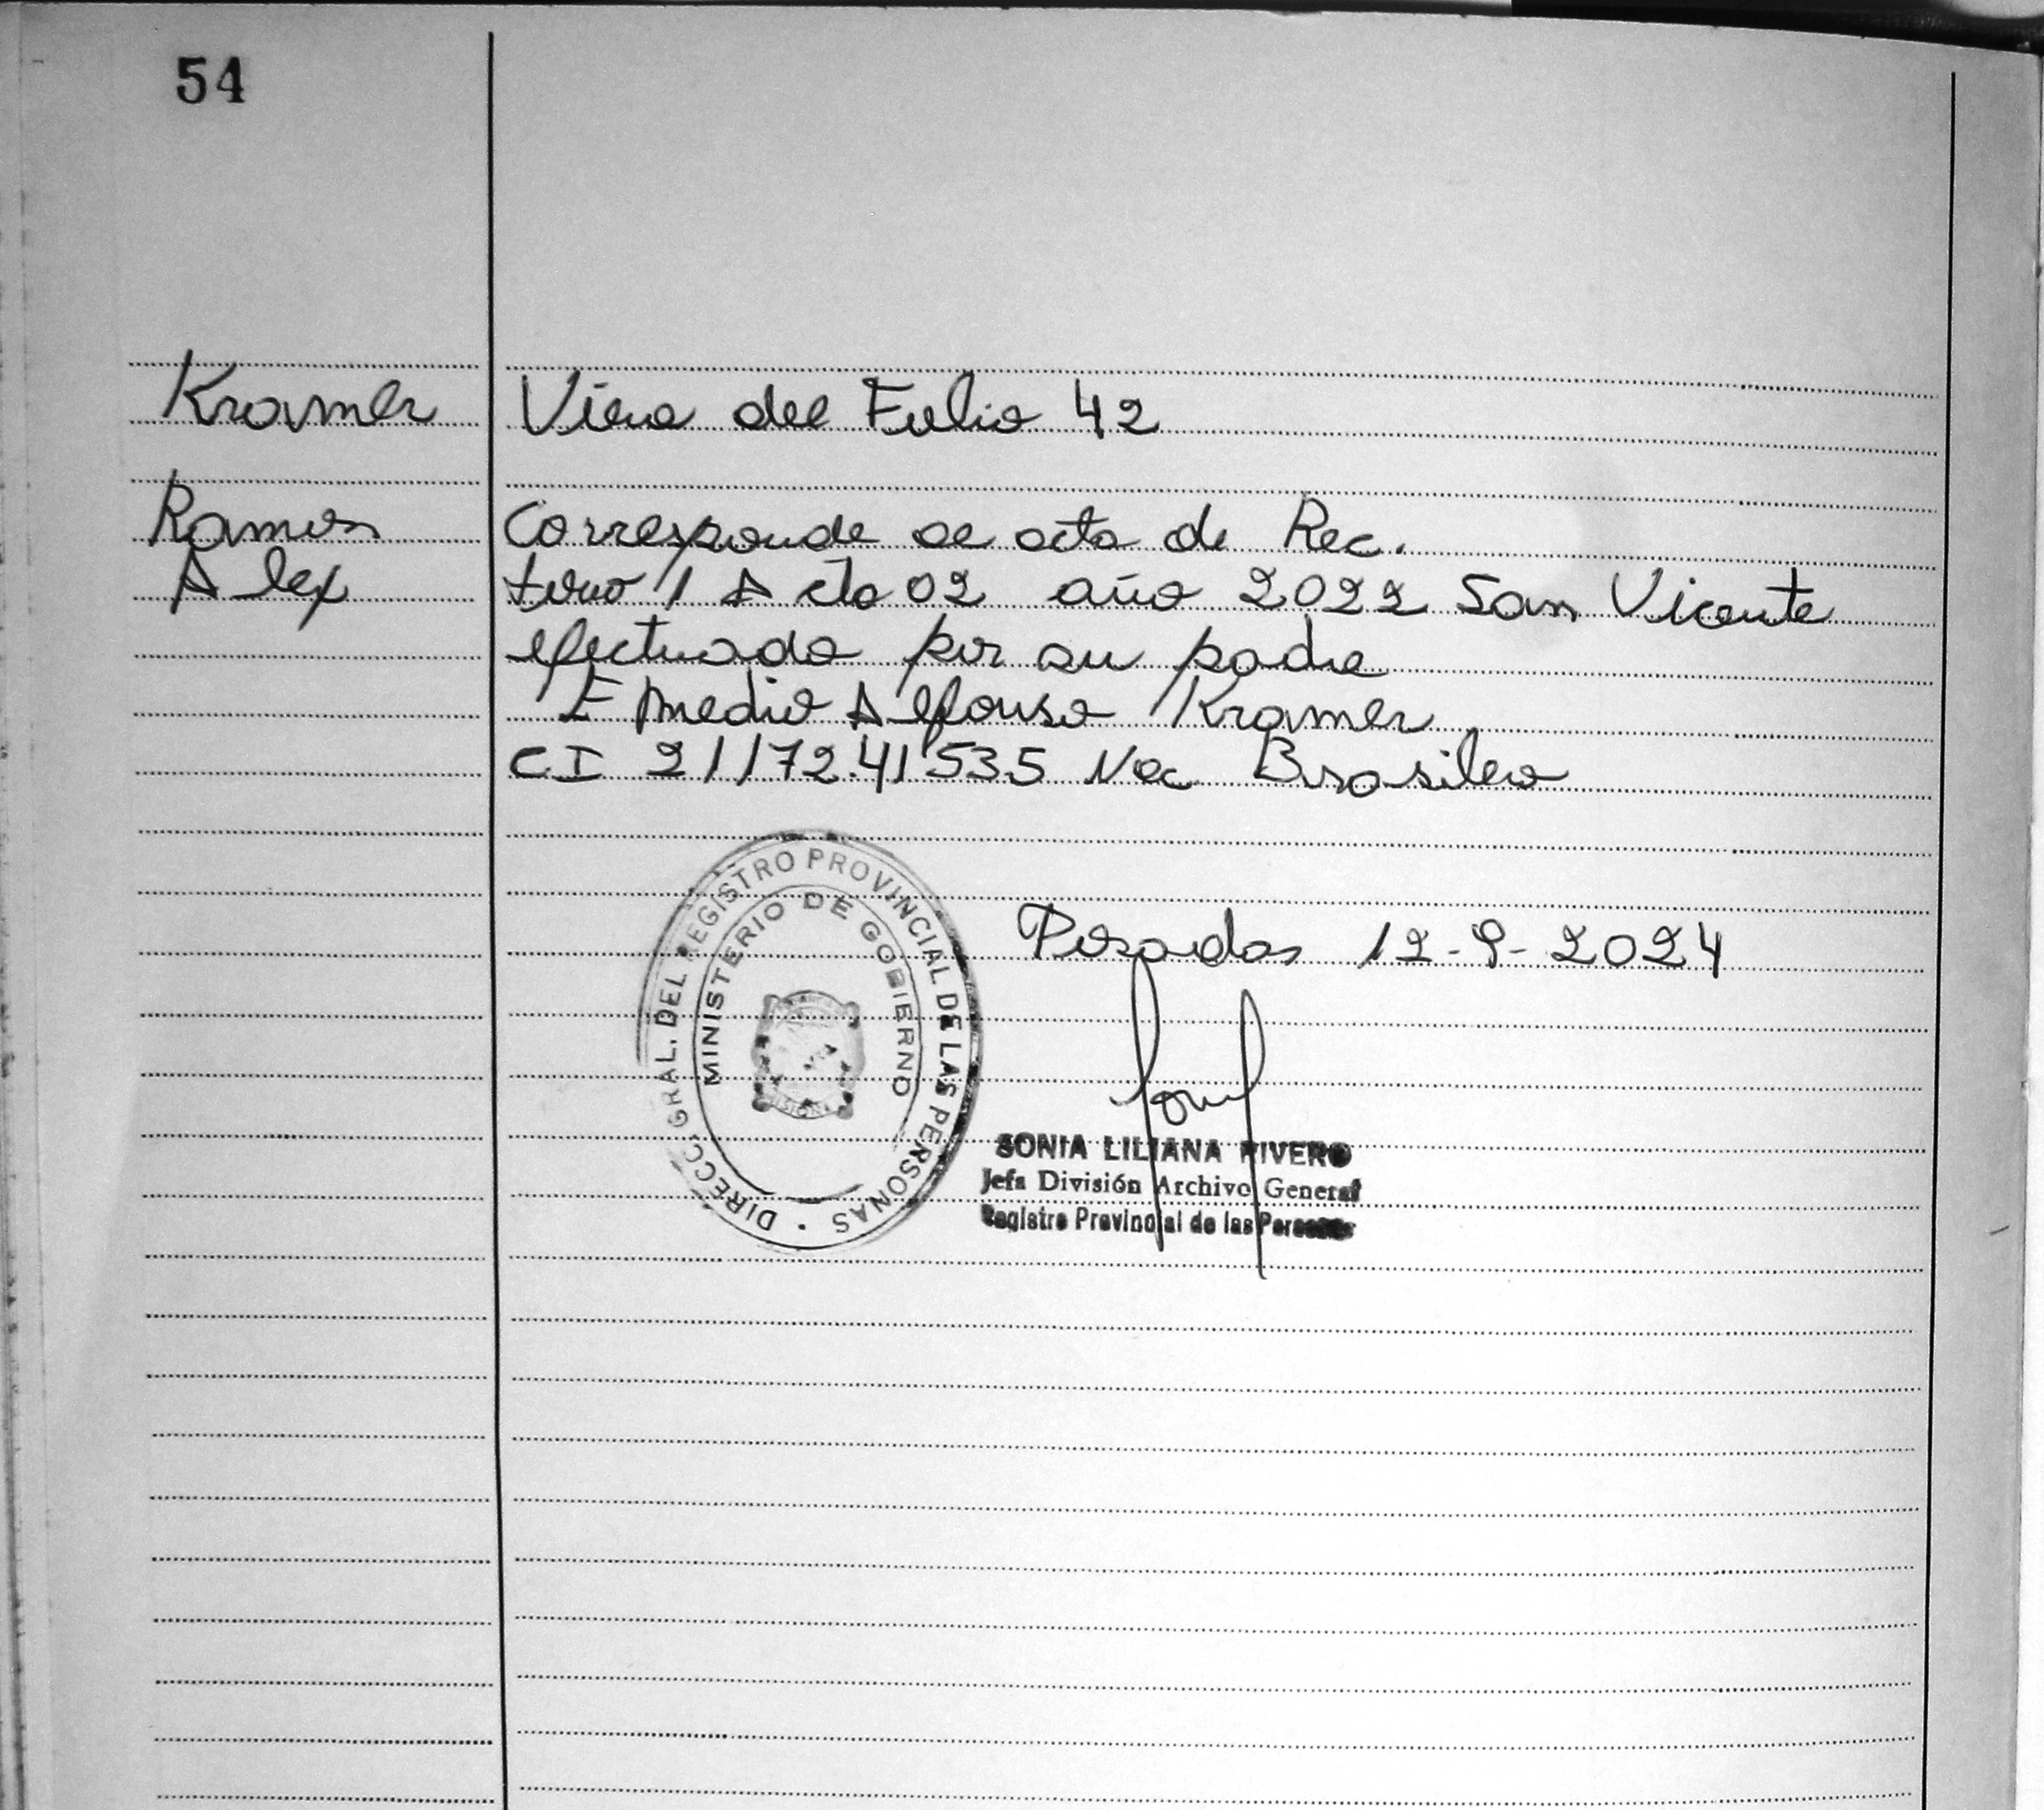 54
Kramer
Viene del Folio 42
Ramos
Alex
Corresponde al acta de Rec.
tomo 1 Acta 02 año 2022 San Vicente
efectuado por su padre
Alfonso Kramer
CI 21172.41535 Nac Brasilero
DIRECC. GRAL. DEL REGISTRO PROVINCIAL DE LAS PERSONAS
MINISTERIO DE GOBIERNO
Posadas 12-9-2024
SONIA LILIANA RIVERO
Jefa División Archivo General
Registro Provincial de las Personas